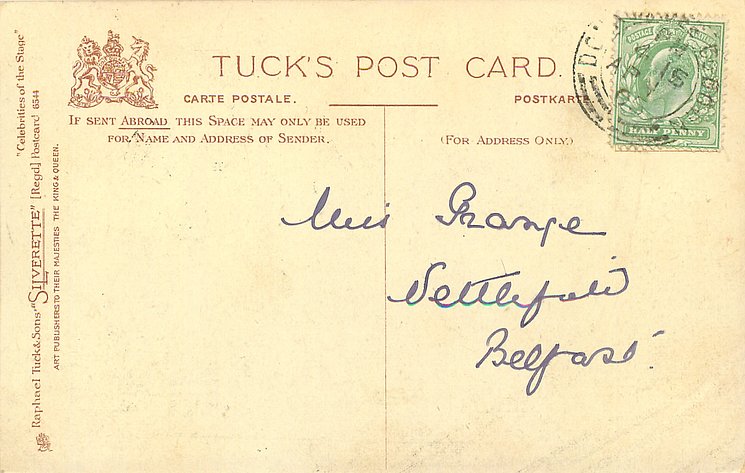 TUCK'S POST CARD.
CARTE POSTALE.
POSTKAR
IF SENT ABROAD THIS SPACE MAY ONLY BE USED
FOR NAME AND ADDRESS OF SENDER.
(FOR ADDRESS ONLY.)
POSTAGE
HALF PENNY
Miss Grange
Nettlefield
Belfast.
"Celebrities of the Stage"
Raphael Tuck & Sons' "SILVERETTE" [Regd.] Postcard 6544
ART PUBLISHERS TO THEIR MAJESTIES THE KING & QUEEN.